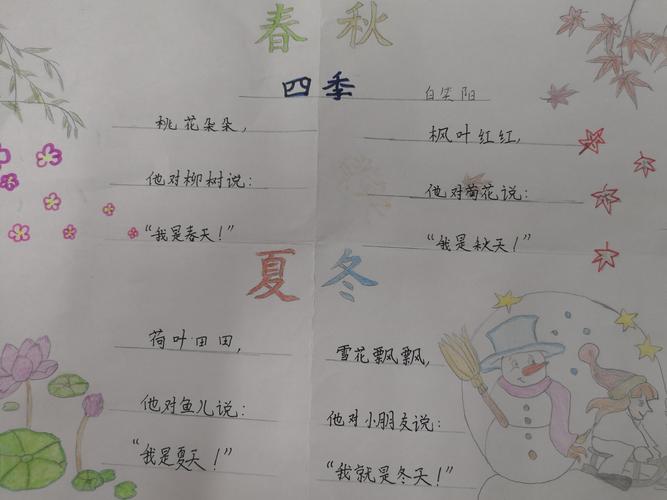 春 秋
四季
白笑阳
桃花朵朵，
他对柳树说：
“我是春天！”
枫叶红红，
他对菊花说：
“我是秋天！”
夏 冬
荷叶田田，
他对鱼儿说：
“我是夏天！”
雪花飘飘，
他对小朋友说：
“我就是冬天！”